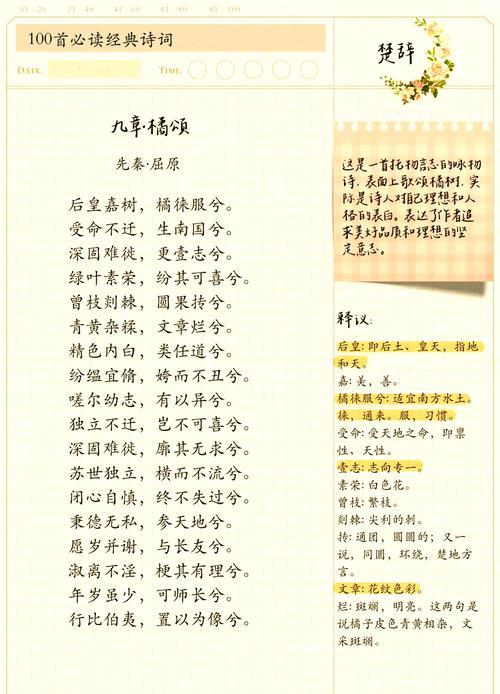 01 - 20 21 - 40 41 - 60 61 - 80 81 - 100
100首必读经典诗词
DATE. TIME.
九章·橘颂
先秦·屈原
后皇嘉树，橘徕服兮。
受命不迁，生南国兮。
深固难徙，更壹志兮。
绿叶素荣，纷其可喜兮。
曾枝剡棘，圆果抟兮。
青黄杂糅，文章烂兮。
精色内白，类任道兮。
纷缊宜脩，姱而不丑兮。
嗟尔幼志，有以异兮。
独立不迁，岂不可喜兮。
深固难徙，廓其无求兮。
苏世独立，横而不流兮。
闭心自慎，终不失过兮。
秉德无私，参天地兮。
愿岁并谢，与长友兮。
淑离不淫，梗其有理兮。
年岁虽少，可师长兮。
行比伯夷，置以为像兮。
楚辞
这是一首托物言志的咏物
诗，表面上歌颂橘树，实
际是诗人对自己理想和人
格的表白。表达了作者追
求美好品质和理想的坚
定意志。
释议：
后皇：即后土、皇天，指地
和天。
嘉：美，善。
橘徕服兮：适宜南方水土。
徕，通来。服，习惯。
受命：受天地之命，即禀
性、天性。
壹志：志向专一。
素荣：白色花。
曾枝：繁枝。
剡棘：尖利的刺。
抟：通团，圆圆的；又一
说，同圆，环绕，楚地方
言。
文章：花纹色彩。
烂：斑斓，明亮。这两句是
说橘子皮色青黄相杂，文
采斑斓。